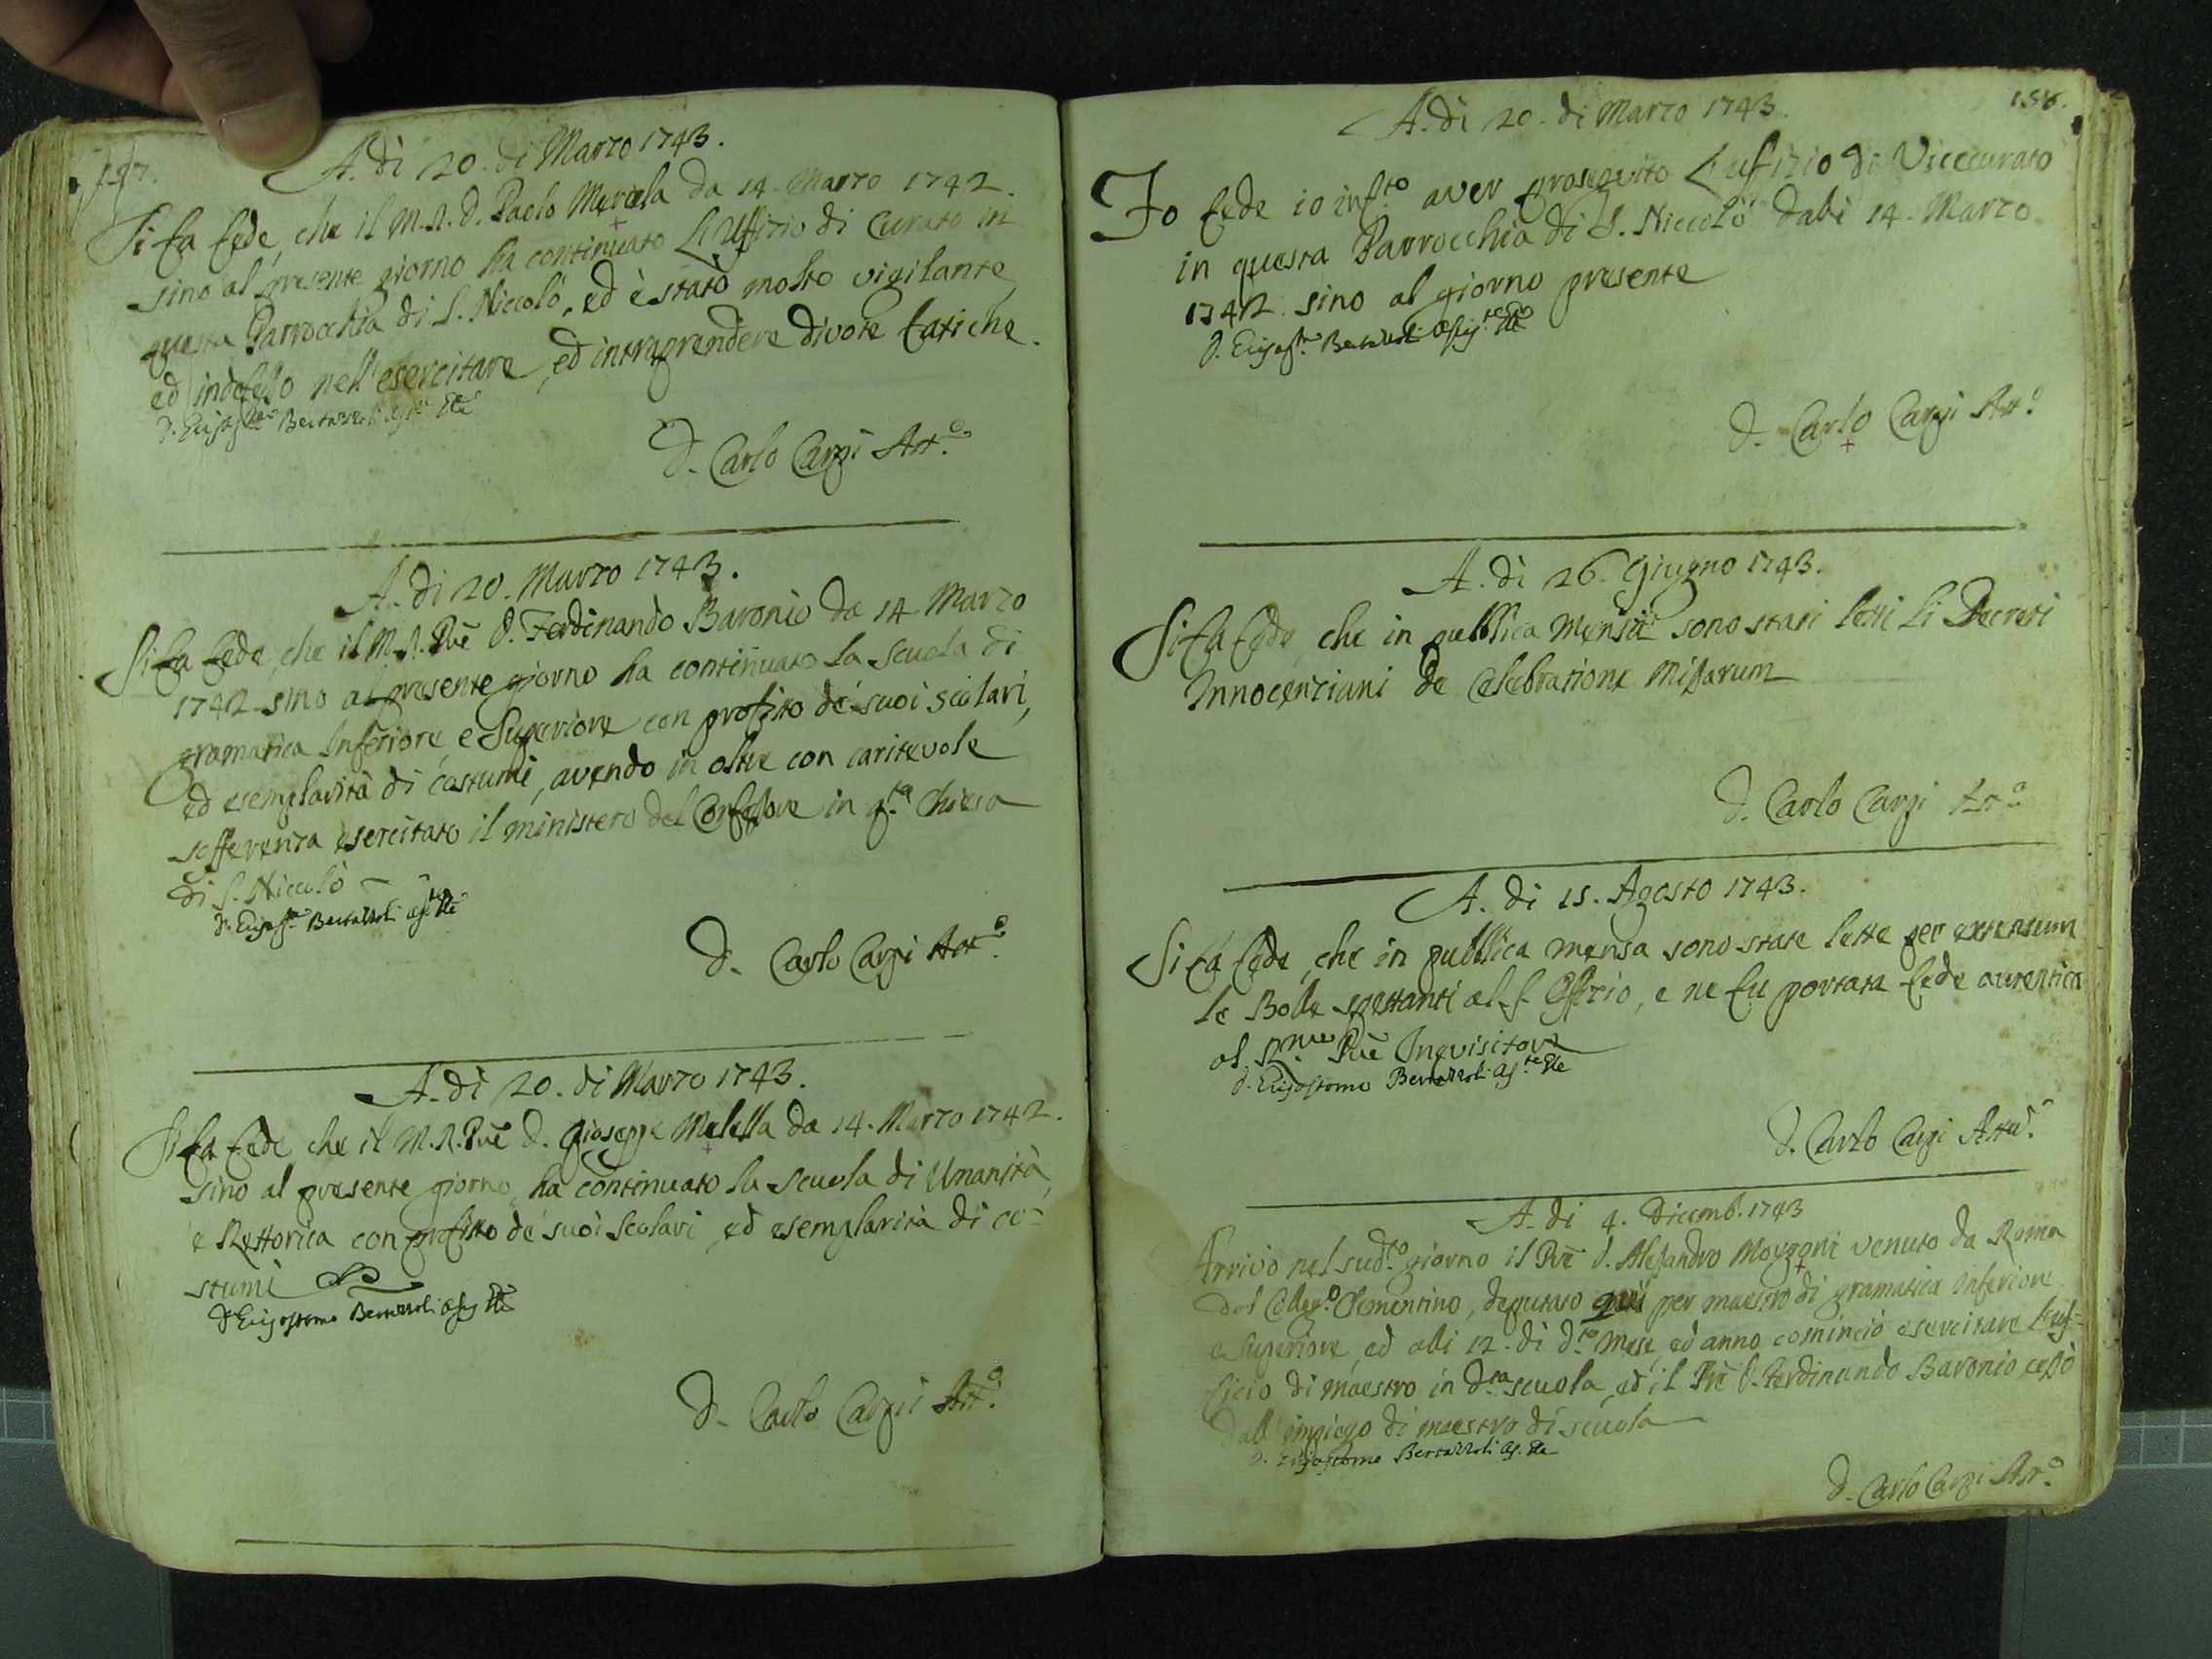 157.
A. di 20. di Marzo 1743.
Si fa fede, che il M. R. D. Paolo Marcela da 14. Marzo 1742.
sino al presente giorno ha continuato L'Uffizio di Curato in
questa Parrocchia di S. Niccolò, ed è stato molto vigilante,
ed indefesso nell'esercitare, ed intraprendere divote fatiche.
D. Bertazzoli
D. Carlo Carpi Att.º
A. di 20. Marzo 1743.
Si fa fede, che il M. R. Pre D. Ferdinando Baronio da 14. Marzo
1742 sino al presente giorno ha continuato la scuola di
gramatica Inferiore, e Superiore con profitto de' suoi scolari,
ed esemplarità di costumi, avendo in oltre con caritevole
sofferenza esercitato il ministero del Confessore in q.ta Chiesa
di S. Niccolò
D. Bertazzoli
D. Carlo Carpi Att.º
A. di 20. di Marzo 1743.
Si fa fede, che il M. R. Pre D. Gioseppe Melella da 14. Marzo 1742.
sino al presente giorno, ha continuato la scuola di Umanità,
e Rettorica con profitto de' suoi Scolari, ed esemplarità di co-
stumi
D. Grisostomo Bertazzoli
D. Carlo Carpi Att.º
158.
A. di 20. di Marzo 1743.
Fo fede io inf.to aver proseguito L'ufizio di Vicecurato
in questa Parrocchia di S. Niccolò dalli 14. Marzo
1742. sino al giorno presente
D. Bertazzoli
D. Carlo Carpi Att.º
A. di 26. Giugno 1743.
Si fa fede, che in pubblica Mensa sono stati letti li Decreti
Innocenziani de Celebratione Missarum
D. Carlo Carpi Att.º
A. di 15. Agosto 1743.
Si fa fede, che in pubblica mensa sono state lette per extensum
le Bolle spettanti al S. Offizio, e ne fu portata fede autentica
al Pre Inquisitore
D. Grisostomo Bertazzoli
D. Carlo Carpi Attu.º
A. di 4. Dicemb. 1743
Arrivò nel sud.to giorno il Pre D. Alessandro venuto da Roma
dal Colleg.º Clementino, deputato per maestro di gramatica Inferiore
e Superiore, ed alli 12. di d.to Mese, ed anno cominciò esercitare l'uf-
ficio di maestro in d.ta scuola, ed il Pre D. Ferdinando Baronio cessò
dall'impiego di maestro di scuola
D. Grisostomo Bertazzoli
D. Carlo Carpi Att.º